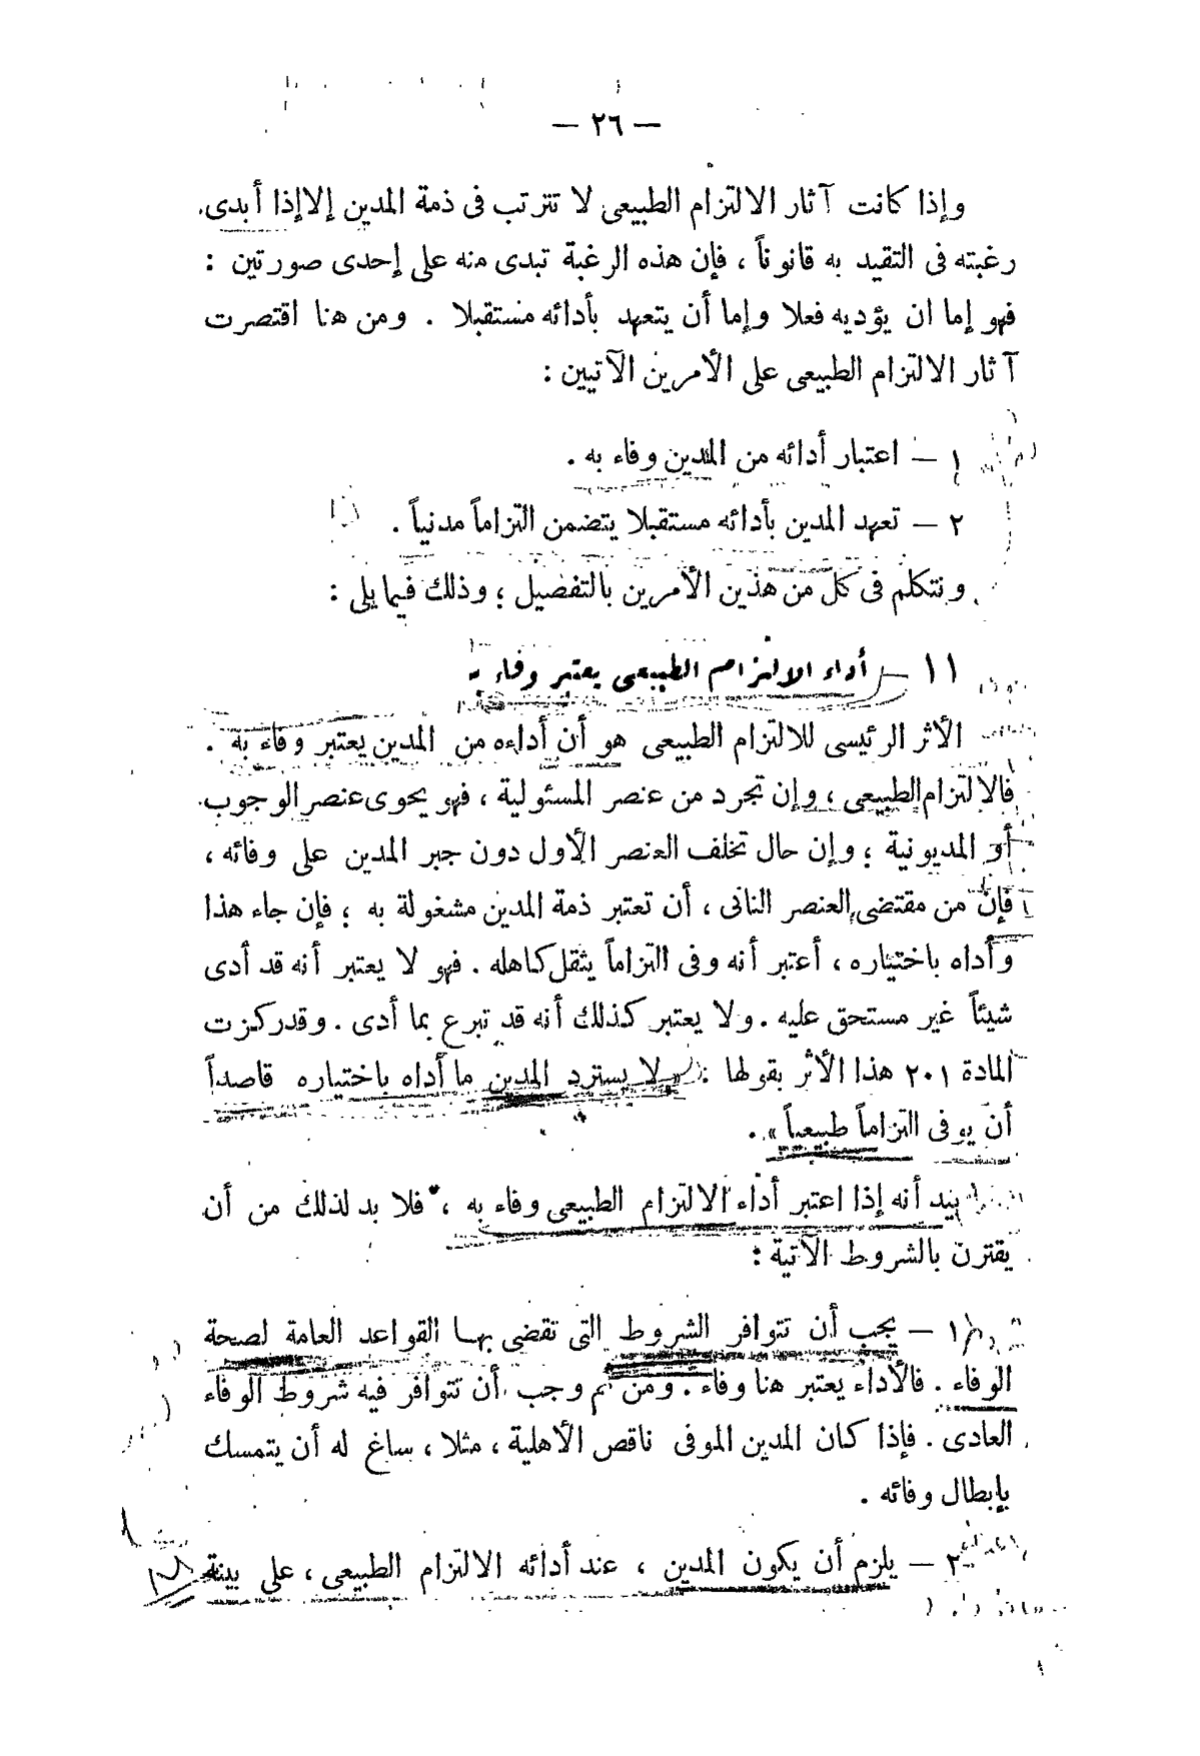 — ٢٦ —
وإذا كانت آثار الالتزام الطبيعى لا تترتب فى ذمة المدين إلا إذا أبدى
رغبته فى التقيد به قانوناً ، فإن هذه الرغبة تبدى منه على إحدى صورتين :
فهو إما ان يؤديه فعلا وإما أن يتعهد بأدائه مستقبلا . ومن هنا اقتصرت
آثار الالتزام الطبيعى على الأمرين الآتيين :
١ — اعتبار أدائه من المدين وفاء به .
٢ — تعهد المدين بأدائه مستقبلا يتضمن التزاماً مدنياً .
ونتكلم فى كل من هذين الأمرين بالتفصيل ؛ وذلك فيما يلى :
١١ — أداء الالتزام الطبيعى يعتبر وفاء به
الأثر الرئيسى للالتزام الطبيعى هو أن أداءه من المدين يعتبر وفاء به .
فالالتزام الطبيعى ، وإن تجرد من عنصر المسئولية ، فهو يحوى عنصر الوجوب
أو المديونية ؛ وإن حال تخلف العنصر الأول دون جبر المدين على وفائه ،
فإن من مقتضى العنصر الثانى ، أن تعتبر ذمة المدين مشغولة به ؛ فإن جاء هذا
وأداه باختياره ، أعتبر أنه وفى التزاماً يثقل كاهله . فهو لا يعتبر أنه قد أدى
شيئاً غير مستحق عليه . ولا يعتبر كذلك أنه قد تبرع بما أدى . وقد ركزت
المادة ٢٠١ هذا الأثر بقولها : « لا يسترد المدين ما أداه باختياره قاصداً
أن يوفى التزاماً طبيعياً » .
بيد أنه إذا اعتبر أداء الالتزام الطبيعى وفاء به ، فلا بد لذلك من أن
يقترن بالشروط الآتية :
١ — يجب أن تتوافر الشروط التى تقضى بهـا القواعد العامة لصحة
الوفاء . فالأداء يعتبر هنا وفاء . ومن ثم وجب أن تتوافر فيه شروط الوفاء
العادى . فإذا كان المدين الموفى ناقص الأهلية ، مثلا ، ساغ له أن يتمسك
بإبطال وفائه .
٢ — يلزم أن يكون المدين ، عند أدائه الالتزام الطبيعى ، على بينة